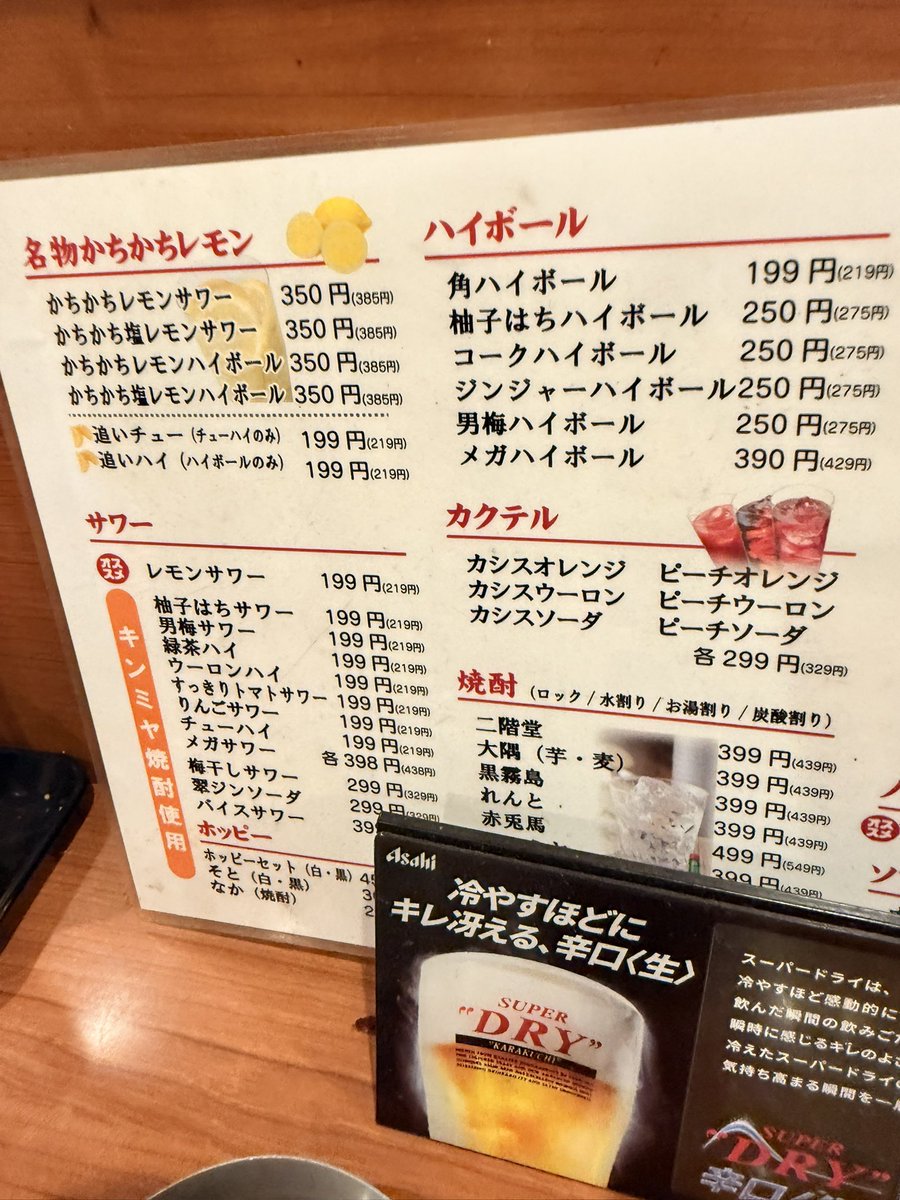 名物かちかちレモン
かちかちレモンサワー 350円(385円)
かちかち塩レモンサワー 350円(385円)
かちかちレモンハイボール 350円(385円)
かちかち塩レモンハイボール 350円(385円)
追いチュー(チューハイのみ) 199円(219円)
追いハイ(ハイボールのみ) 199円(219円)
サワー
オススメ
レモンサワー 199円(219円)
キンミヤ焼酎使用
柚子はちサワー 199円(219円)
男梅サワー 199円(219円)
緑茶ハイ 199円(219円)
ウーロンハイ 199円(219円)
すっきりトマトサワー 199円(219円)
りんごサワー 199円(219円)
チューハイ 199円(219円)
メガサワー 各398円(438円)
梅干しサワー 299円(329円)
翠ジンソーダ 299円(329円)
バイスサワー
ホッピー
ホッピーセット(白・黒)
そと(白・黒)
なか(焼酎)
ハイボール
角ハイボール 199円(219円)
柚子はちハイボール 250円(275円)
コークハイボール 250円(275円)
ジンジャーハイボール 250円(275円)
男梅ハイボール 250円(275円)
メガハイボール 390円(429円)
カクテル
カシスオレンジ ピーチオレンジ
カシスウーロン ピーチウーロン
カシスソーダ ピーチソーダ
各299円(329円)
焼酎(ロック/水割り/お湯割り/炭酸割り)
二階堂 399円(439円)
大隅(芋・麦) 399円(439円)
黒霧島 399円(439円)
れんと 399円(439円)
赤兎馬 499円(549円)
399円(439円)
オススメ
Asahi
冷やすほどに
キレ冴える、辛口〈生〉
SUPER
"DRY"
"KARAKUCHI"
スーパードライは、
冷やすほど感動的に
飲んだ瞬間の飲みご
瞬時に感じるキレのよ
冷えたスーパードライの
気持ち高まる瞬間を一
SUPER
"DRY"
辛口